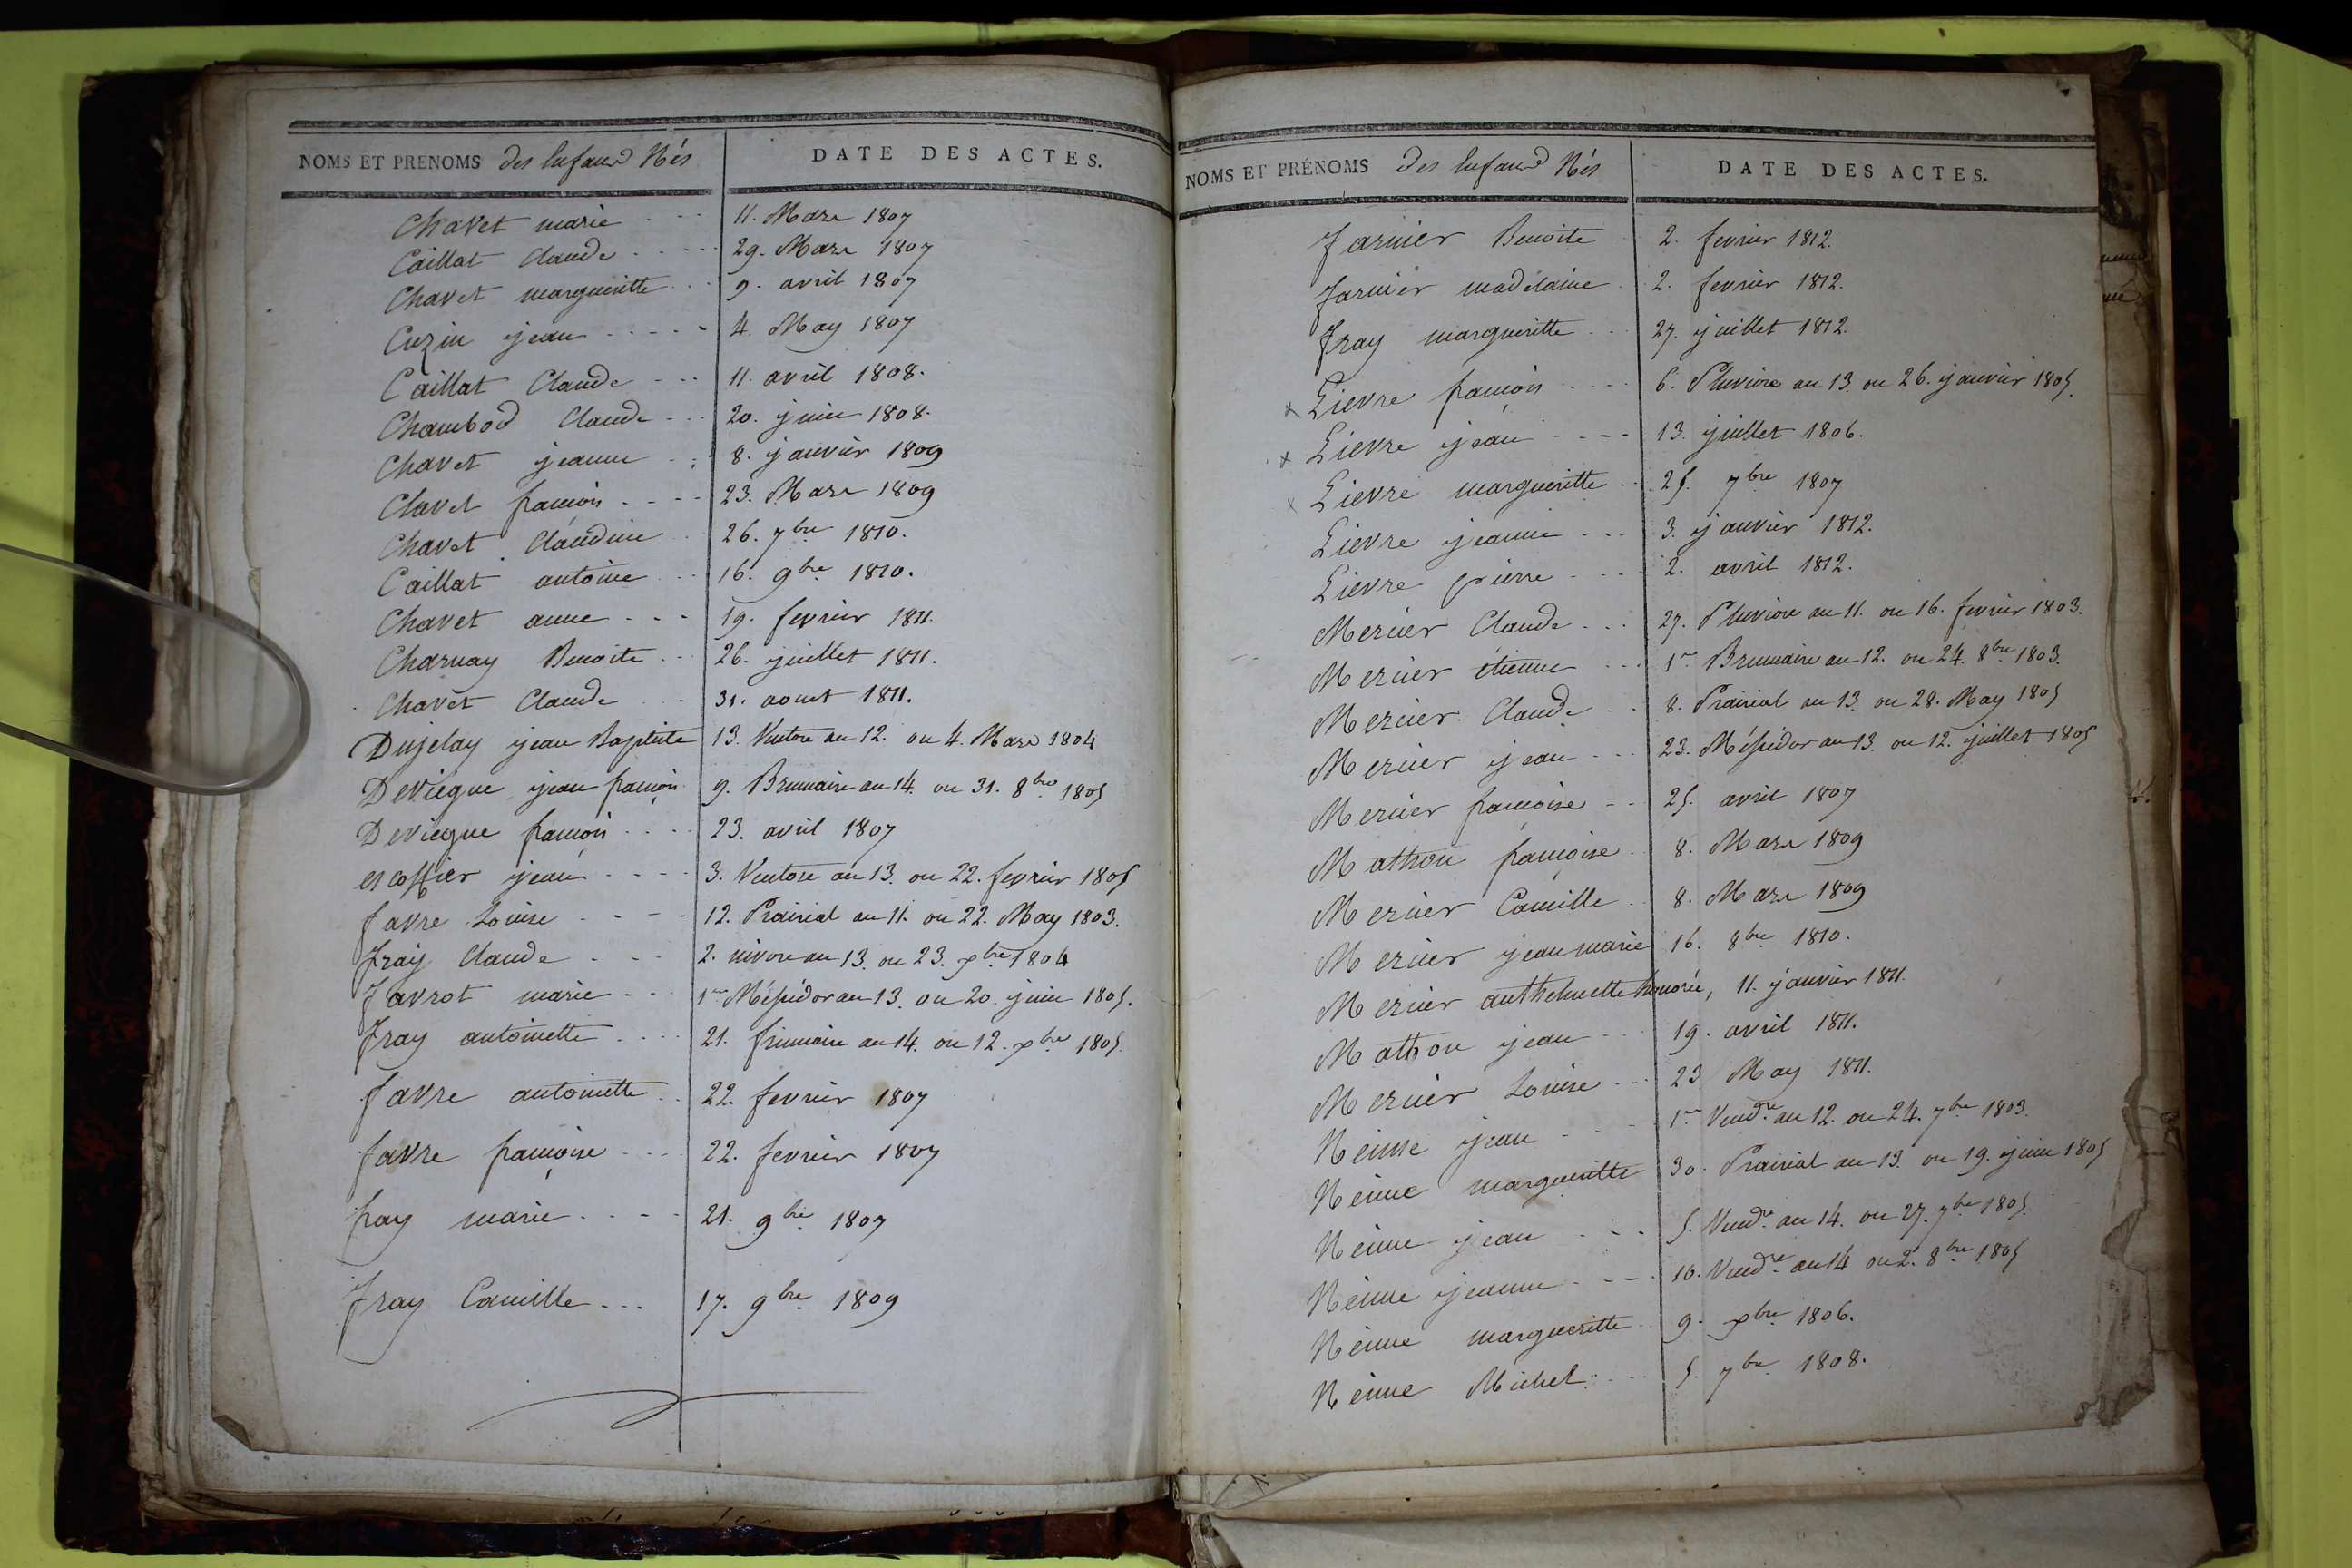 NOMS ET PRENOMS des Enfans Nés DATE DES ACTES.
Chavet marie - - - 11. Mars 1807
Caillat Claude - - - - 29. Mars 1807
Chavet margueritte - - 9. avril 1807
Cuzin jean - - - - - 4. May 1807
Caillat Claude - - - 11. avril 1808.
Chambod Claude - - - 20. juin 1808.
Chavet jeanne - - 8. janvier 1809
Chavet françois - - - - 23. Mars 1809
Chavet Claudine - 26. 7bre 1810.
Caillat antoine - - 16. 9bre 1810.
Chavet anne - - - 19. fevrier 1811.
Charnay Benoite - - 26. juillet 1811.
Chavet Claude - - - 31. aoust 1811.
Dujelay jean Baptiste 13. Ventose an 12. ou 4. Mars 1804
Devicque jean françois 9. Brumaire an 14. ou 31. 8bre 1805
Devicque françois - - - - 23. avril 1807
escoffier jean - - - - 3. Ventose an 13. ou 22. fevrier 1805
favre Louise - - - - 12. Prairial an 11. ou 22. May 1803.
fray Claude - - - 2. nivose an 13. ou 23. xbre 1804
favrot marie - - - 1er Méssidor an 13. ou 20. juin 1805.
fray antoinette - - - - 21. frimaire an 14. ou 12. xbre 1805.
favre antoinette - - 22. fevrier 1807
favre françoise - - - 22. fevrier 1807
fray marie - - - - 21. 9bre 1807
fray Camille - - - 17. 9bre 1809
NOMS ET PRÉNOMS des Enfans Nés DATE DES ACTES.
farnier Benoite 2. fevrier 1812.
farnier madelaine - 2. fevrier 1812.
fray margueritte - - - 27. juillet 1812.
x Lievre françois - - - - 6. Pluviose an 13. ou 26. janvier 1805.
x Lievre jean - - - - 13. juillet 1806.
x Lievre margueritte - - 25. 7bre 1807
Lievre jeanne - - - 3. janvier 1812.
Lievre pierre - - - 2. avril 1812.
Mercier Claude - - - 27. Pluviose an 11. ou 16. fevrier 1803.
Mercier étienne - - - 1er Brumaire an 12. ou 24. 8bre 1803.
Mercier Claude - - 8. Prairial an 13. ou 28. May 1805
Mercier jean - - - 23. Méssidor an 13. ou 12. juillet 1805
Mercier françoise - - 25. avril 1807
Mathon françoise - 8. Mars 1809
Mercier Camille - - 8. Mars 1809
Mercier jean marie 16. 8bre 1810.
Mercier anthelmette honorée, 11. janvier 1811.
Mathon jean - - - 19. avril 1811.
Mercier Louise - - - 23 May 1811.
Neime jean - - - - 1er Vendre an 12. ou 24. 7bre 1803.
Neime margueritte 30. Prairial an 13. ou 19. juin 1805
Neime jean - - - 5. Vendre an 14. ou 27. 7bre 1805.
Neime jeanne - - - - 10. Vendre an 14 ou 2. 8bre 1805
Neime margueritte - 9. xbre 1806.
Neime Michel - - - 5. 7bre 1808.